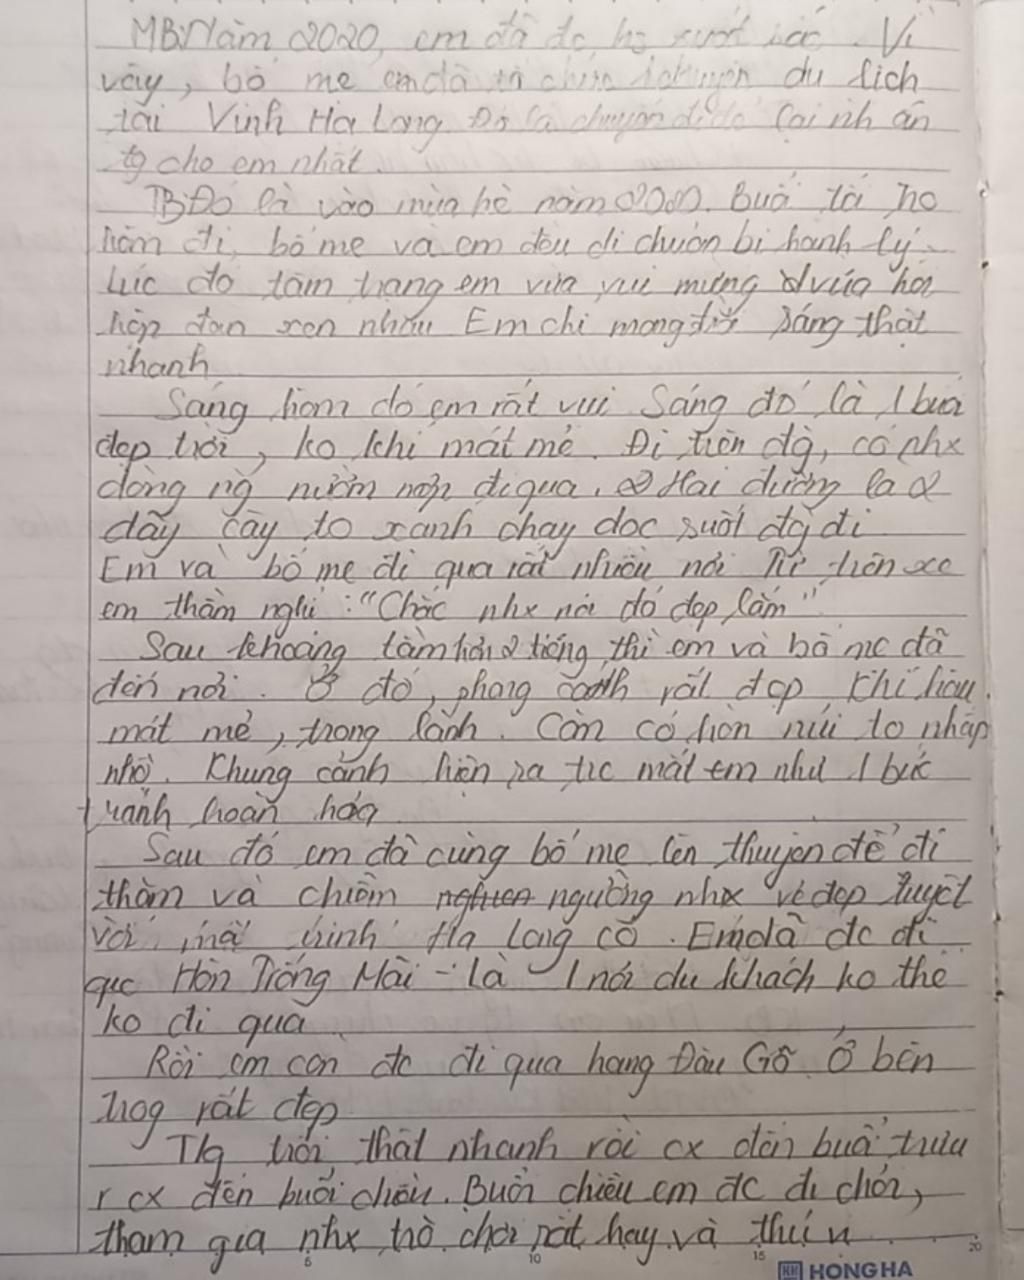 MB: Năm 2020, em đã đc hs xuất sắc. Vì
vậy, bố mẹ em đã tổ chức 1 chuyến du lịch
tại Vịnh Hạ Long Đó là chuyến đi để lại nh ấn
tg cho em nhất.
TB: Đó là vào mùa hè năm 2020. Buổi tối
hôm đi, bố mẹ và em đều đi chuẩn bị hành lý.
Lúc đó tâm trạng em vừa vui mừng vừa hồi
hộp đan xen nhau Em chỉ mong trời sáng thật
nhanh
Sáng hôm đó em rất vui Sáng đó là 1 buổi
đẹp trời, ko khí mát mẻ. Đi trên đg, có nhx
dòng ng nườm nợp đi qua. Hai đường là 2
dãy cây to xanh chạy dọc suốt đg đi
Em và bố mẹ đi qua rất nhiều nơi Từ trên xe
em thầm nghĩ: "Chắc nhx nơi đó đẹp lắm"
Sau khoảng tầm hơn 2 tiếng thì em và bố mẹ đã
đến nơi. Ở đó, phong cảnh rất đẹp, khí hậu
mát mẻ, trong lành. Còn có hòn núi to nhấp
nhô. Khung cảnh hiện ra trc mắt em như 1 bức
tranh hoàn hảo
Sau đó em đã cùng bố mẹ lên thuyền để đi
thăm và chiêm ngưỡng nhx vẻ đẹp tuyệt
vời mà Hạ Long có. Em đã đc đi
qua Hòn Trống Mái - là 1 nơi du khách ko thể
ko đi qua
Rồi em còn đc đi qua hang Đầu Gỗ. Ở bên
trog rất đẹp
Tg trôi thật nhanh rồi cx đến buổi trưa
r cx đến buổi chiều. Buổi chiều em đc đi chơi,
tham gia nhx trò chơi rất hay và thú v
5 10 15 20
HH HONG HA